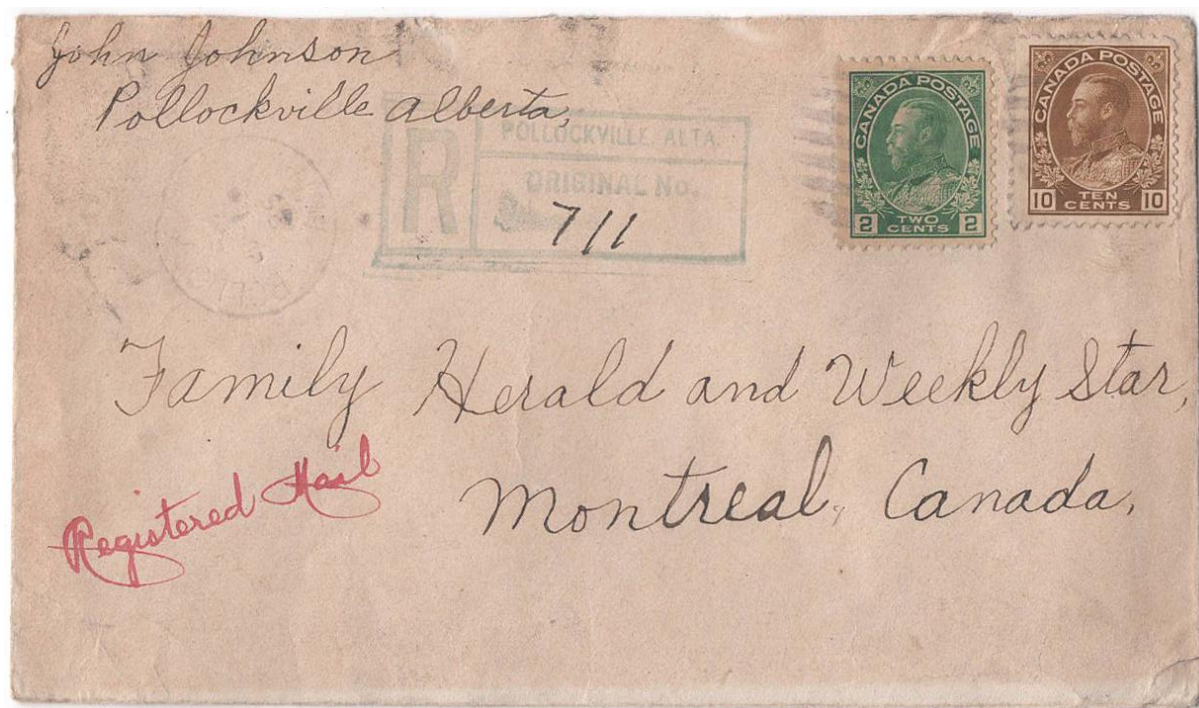 John Johnson
Pollockville Alberta,
R
POLLOCKVILLE, ALTA.
ORIGINAL No.
711
CANADA POSTAGE
2 TWO CENTS 2
CANADA POSTAGE
10 TEN CENTS 10
Family Herald and Weekly Star,
Montreal, Canada,
Registered Mail